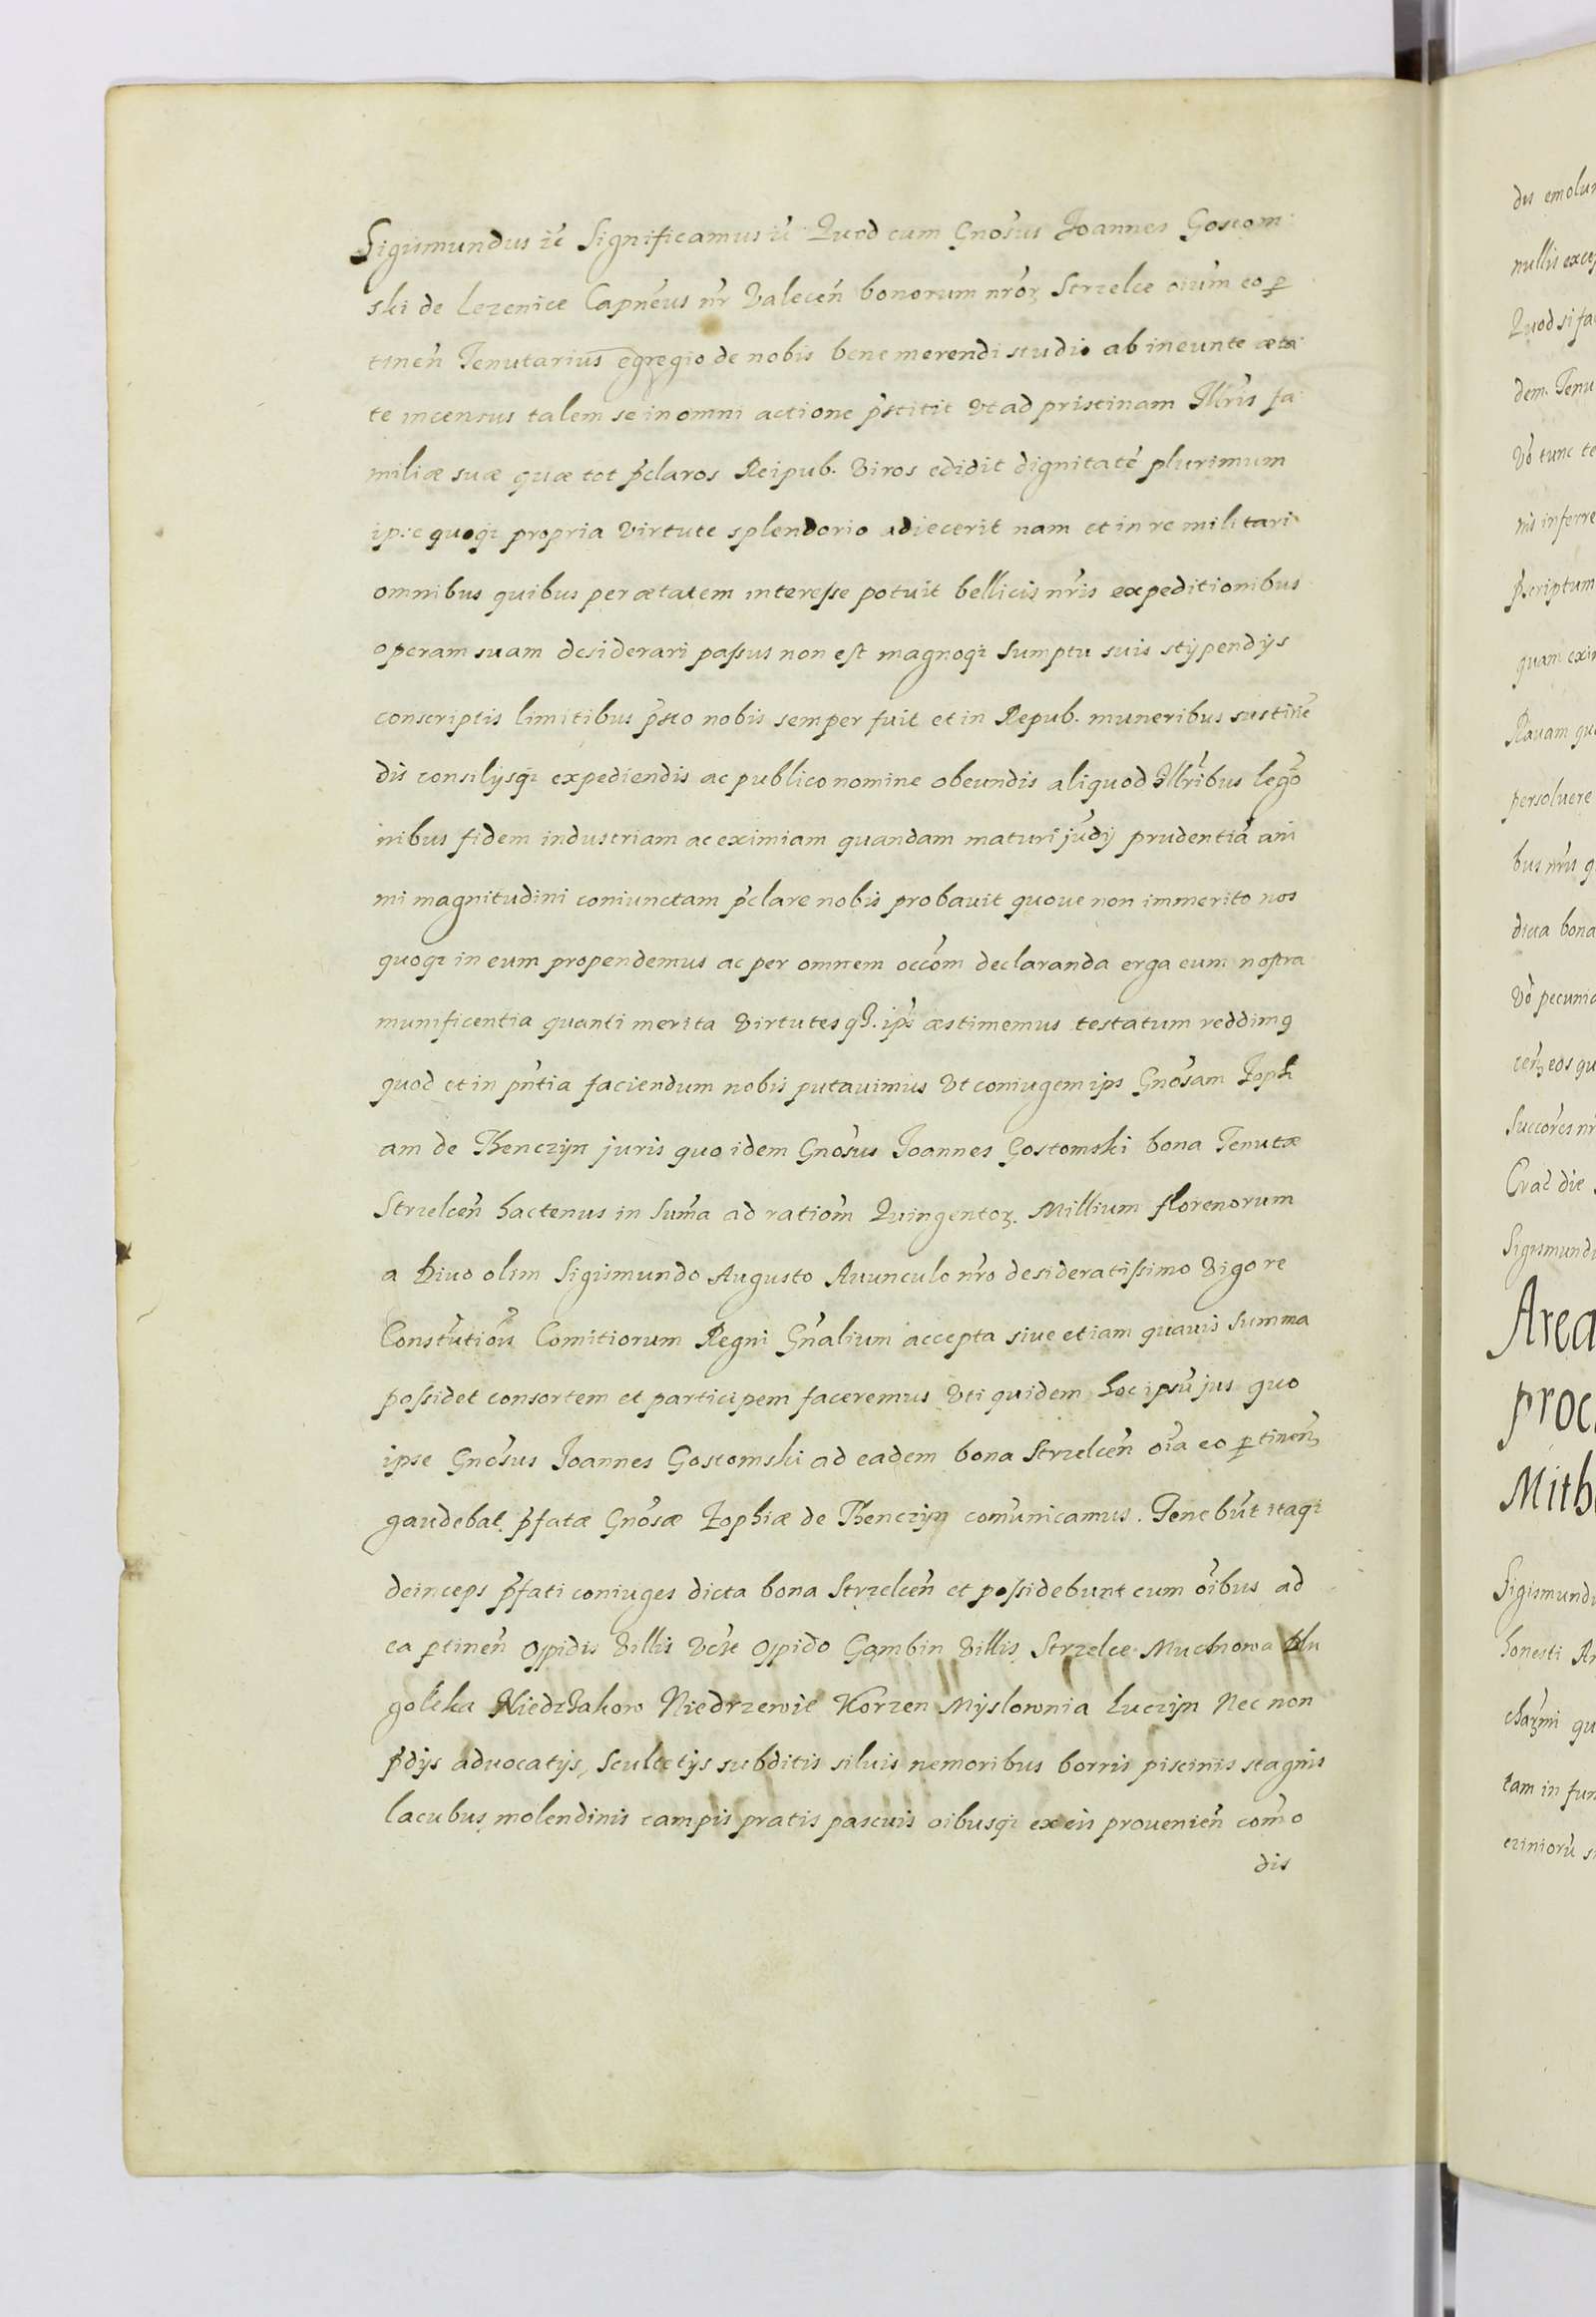 Sigismundus ic Significamus ic Quod cum Gnosus Joannes Gostom
ski de Lezenice Capneus nr Valecen bonorum nror Strzelce oium eo p
tinen Tenutarius egregio de nobis bene merendi studio ab ineunte æta
te incensus talem se in omni actione pstitit Vt ad pristinam Illris fa
miliæ suæ quæ tot pclaros Reipub. Viros edidit dignitate plurimum
ipse quoq propria Virtute splendorio adiecerit nam et in re militari
omnibus quibus per ætatem interesse potuit bellicis nris expeditionibus
operam suam desiderari passus non est magnoq sumptu suis stypendys
conscriptis limitibus psto nobis semper fuit et in Repub. muneribus sustine
dis consilysq expediendis ac publico nomine obeundis aliquod Illribus lego
nibus fidem industriam ac eximiam quandam maturi judy prudentia ani
mi magnitudini coniunctam pclare nobis probauit quoue non immerito nos
quoq in eum propendemus ac per omnem occom declaranda erga eum nostra
munificentia quanti merita Virtutesq. ips æstimemus testatum reddim9
quod et in pntia faciendum nobis putauimus Vt coniugem ips Gnosam Zoph
am de Thenczyn juris quo idem Gnosus Joannes Gostomski bona Tenutæ
Strzelcen hactenus in Suma ad rationm Quingentor. Millium florenorum
a Diuo olim Sigismundo Augusto Auunculo nro desideratissimo Vigore
Constutiou Comitiorum Regni Gnalium accepta siue etiam quauis summa
possidet consortem et participem faceremus Vti quidem hoc ipsu jus quo
ipse Gnosus Joannes Gostomski ad eadem bona Strzelcen oia eo ptinen
gaudebat pfatæ Gnosæ Zophiæ de Thenczyn comunicamus. Tenebut itaq
deinceps pfati coniuges dicta bona Strzelcen et possidebunt cum oibus ad
ea ptinen Oppidis Villis Vcz Oppido Gambin Villis Strzelce Muchnowa Dlu
goleka Niedrzakow Niedrzewie Korzen Myslownia Luczyn Nec non
pdys aduocatys, Scultetys subditis siluis nemoribus borris piscinis stagnis
lacubus molendinis campis pratis pascuis oibusq ex eis prouenien como
dis
dis emolu
nullis exce
Quod si fa
dem Tenu
Vo tunc te
nis inferre
pscriptum
quam exi
Rauam qu
persoluere
bus nris q
dicta bona
Vo pecunia
eos qu
Succores nr
Crac die
Sigismund
Area
proc
Mith
Sigismund
honesti
qu
tam in fun